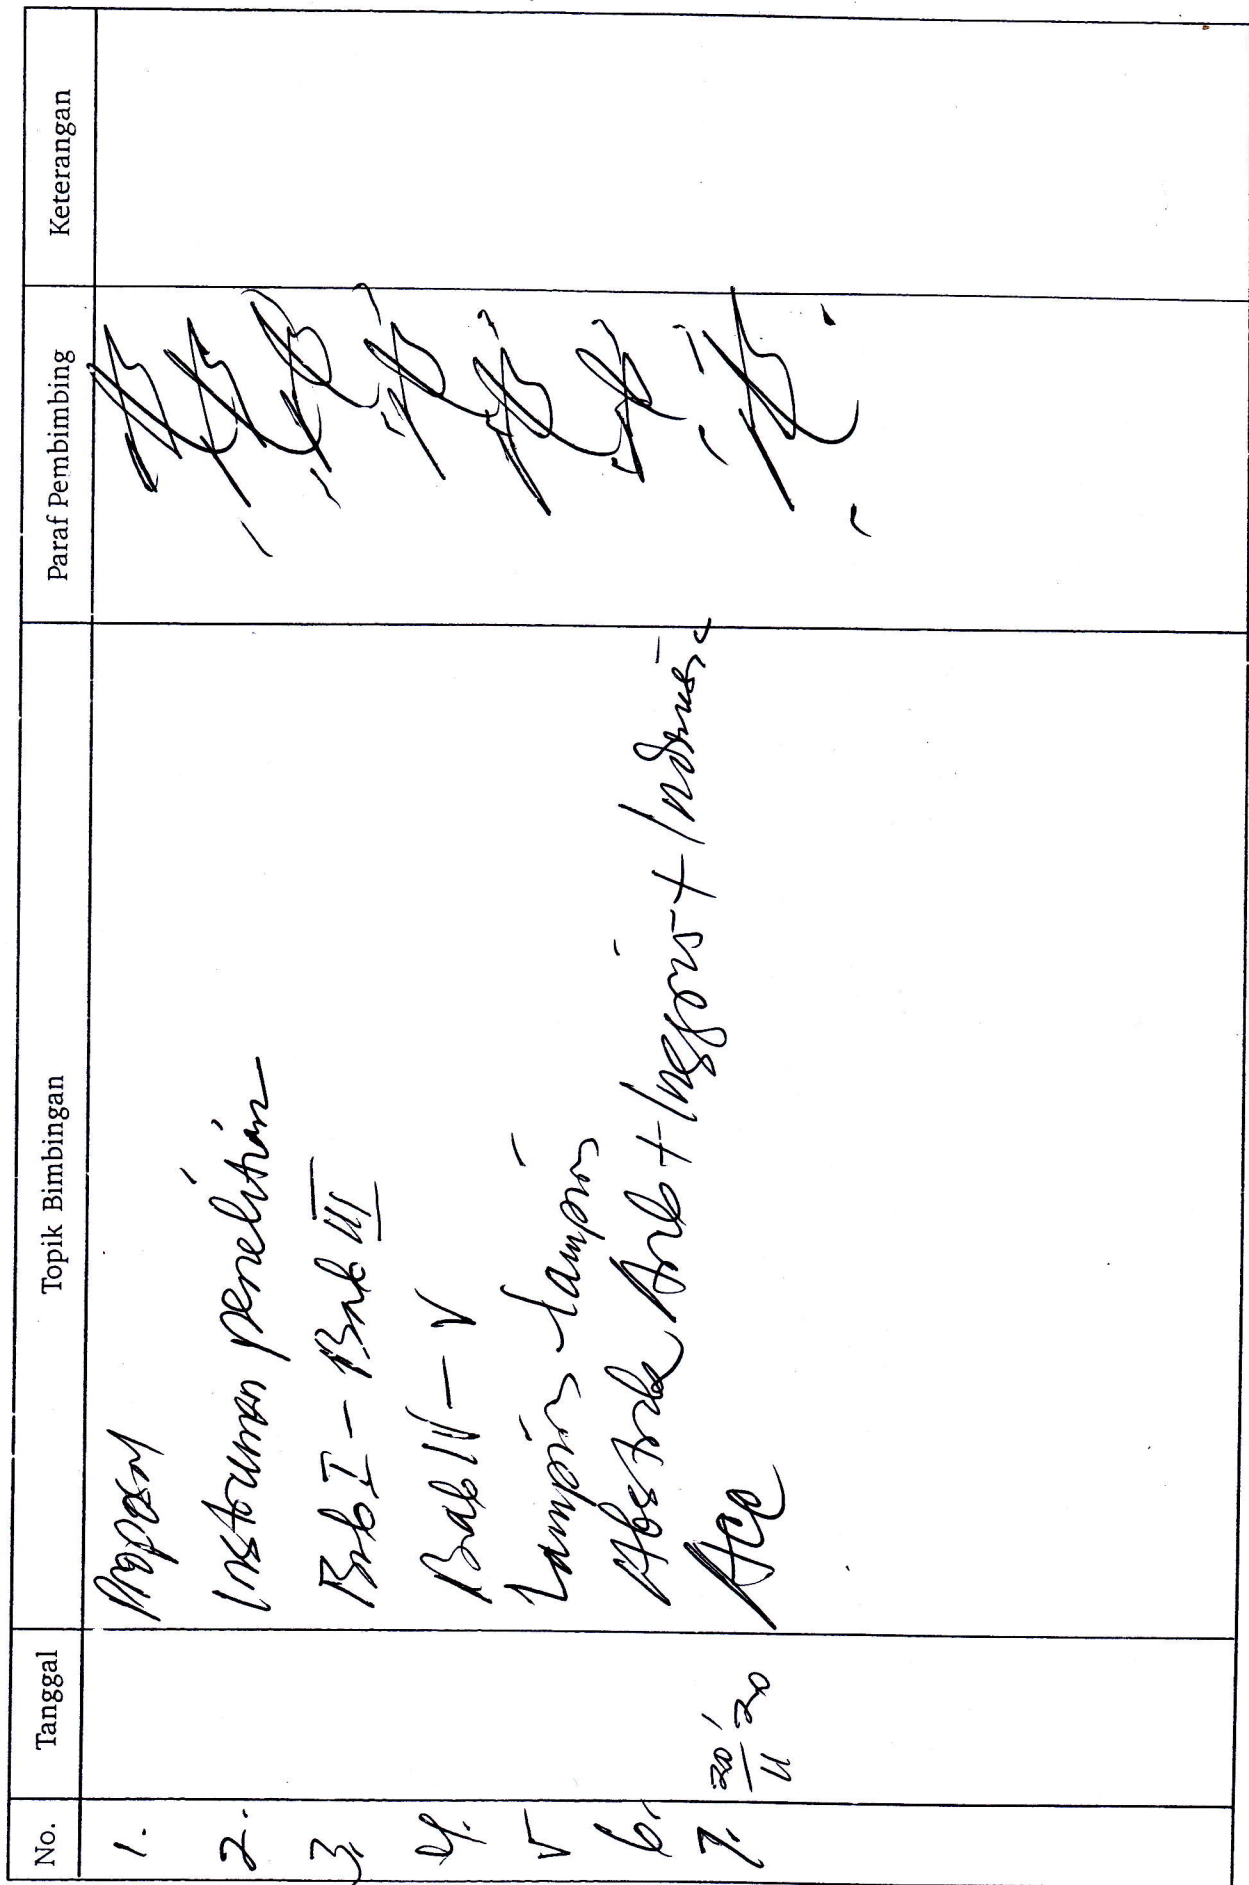 No. Tanggal Topik Bimbingan Paraf Pembimbing Keterangan
1. Proposal
2. Instrumen penelitian
3. Bab I - Bab III
4. Bab IV - V
5 Lampiran-lampiran
6. Abstrak Arab + Inggris + Indonesia
7. 20/11 20 Acc